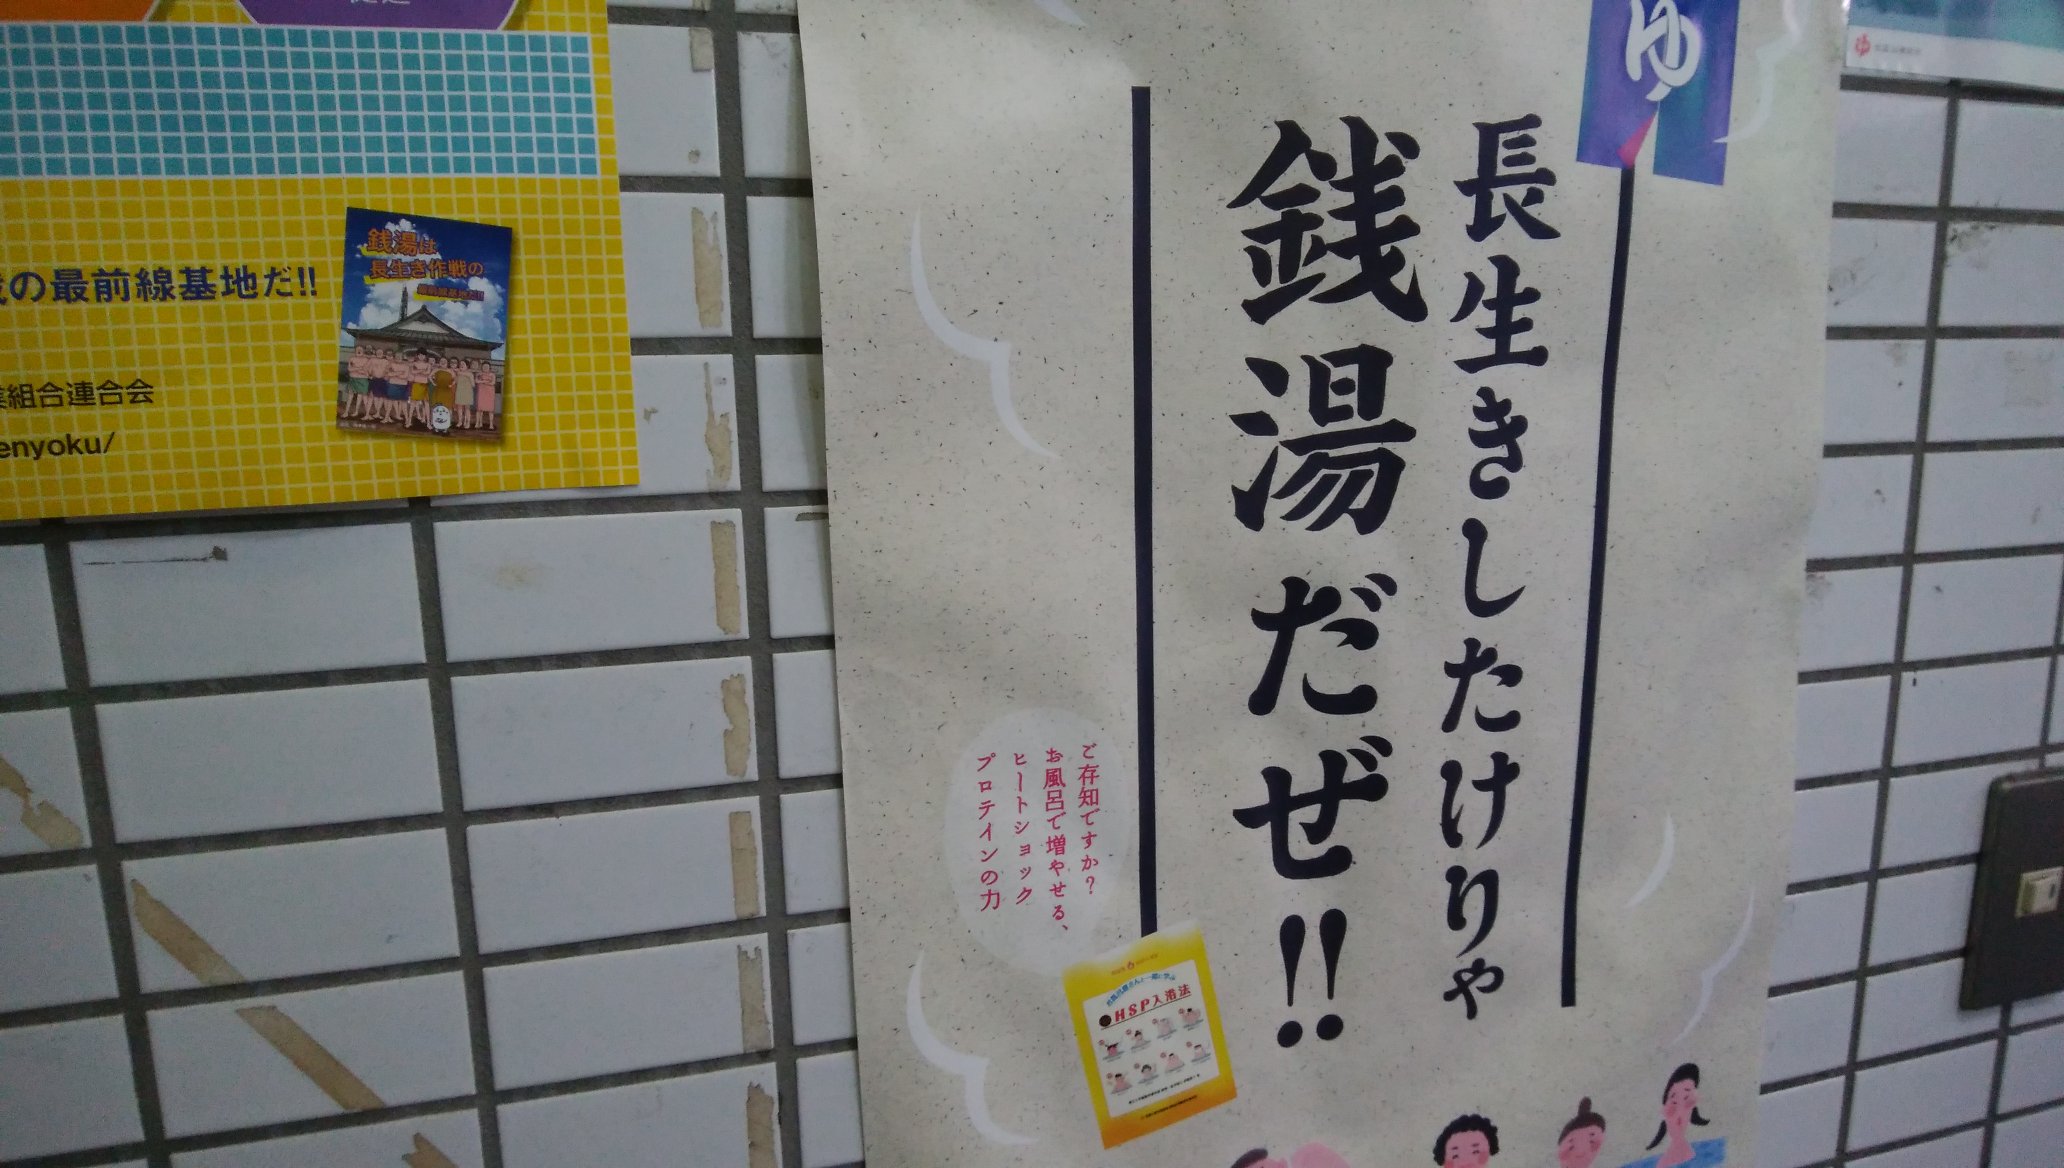 の最前線基地だ!!
銭湯は
長生き作戦の
最前線基地だ!!
組合連合会
enyoku/
ゆ
長生きしたけりゃ
銭湯だぜ!!
ご存知ですか?
お風呂で増やせる、
ヒートショック
プロテインの力
HSP入浴法